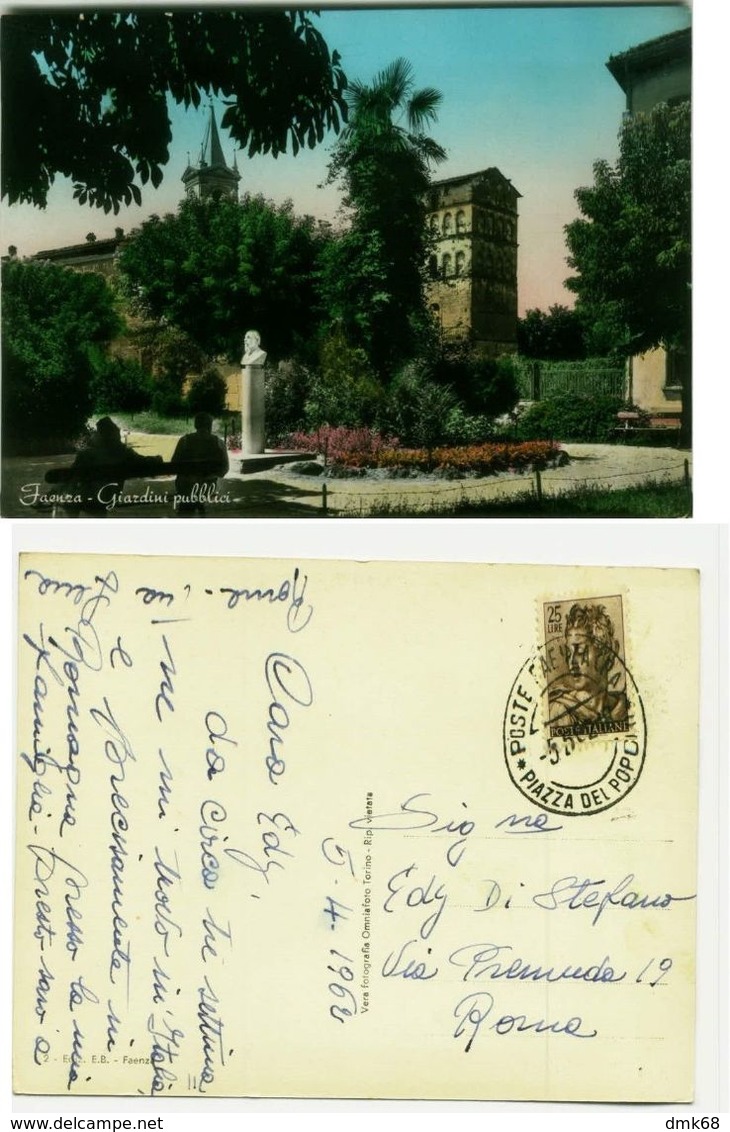 Faenza - Giardini pubblici
25
LIRE
POSTE ITALIANE
* POSTE FAENZA
* PIAZZA DEL POPOLO
Sig na
Edy Di Stefano
Via Premuda 19
Roma
Vera fotografia Omniafoto Torino - Rip. vietata
2 - Ediz. E.B. - Faenza
5-4-1962
Cara Edy,
da circa tre settima=
ne mi trovo in Italia
e Precisamente in
Romagna presso la mia
famiglia - Presto sarò a
Roma
dmk68